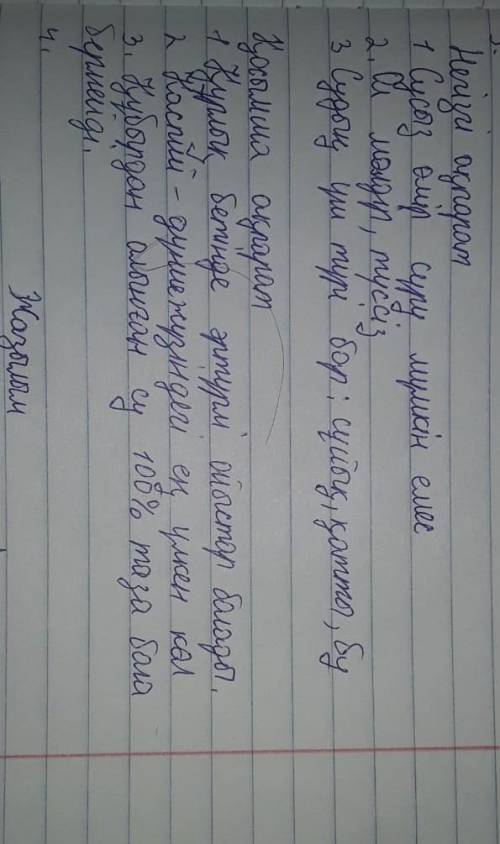 Негізгі ақпарат
1 Сусоз өмір сүру мүмкін емес
2. Ол мөлдір, түссіз
3 Судың үш түрі бар: сұйық, қатты, бу
Қосымша ақпарат
1 Құрлық бетінде әртүрлі ойыстар болады.
2 Каспий - дүниежүзіндегі ең үлкен көл
3. Құбырдан алынған су 100% таза бола
бермейді.
4.
Жазылым